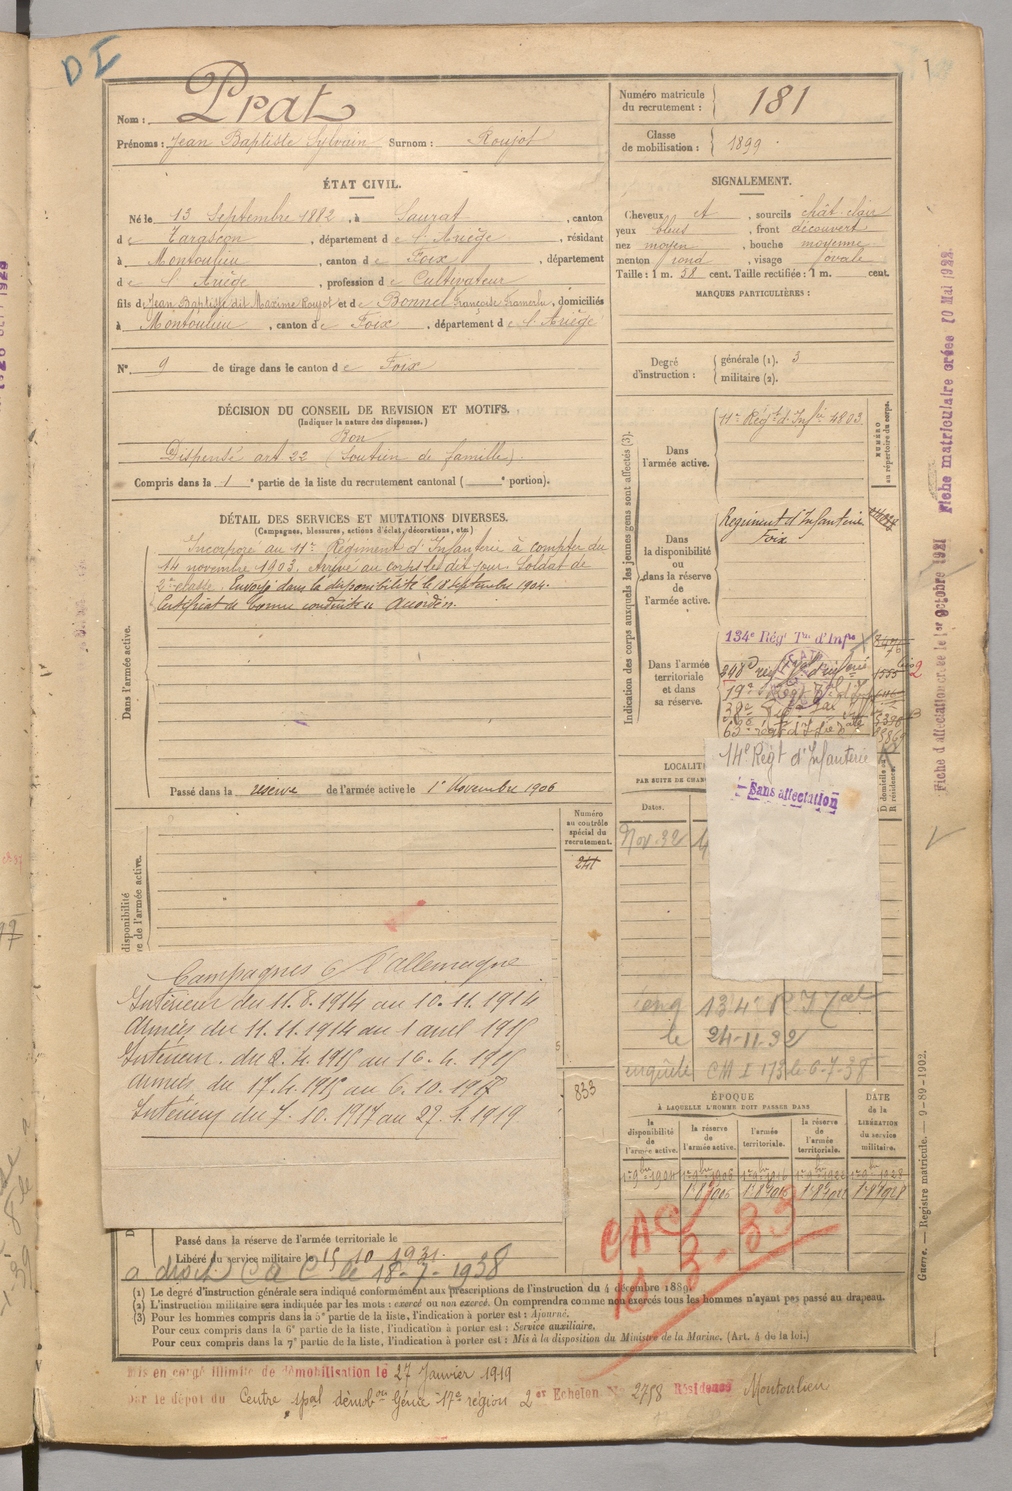 DI
Nom : Prat
Prénoms : Jean Baptiste Sylvain Surnom : Roujot
Numéro matricule du recrutement : 181
Classe de mobilisation : 1899
ÉTAT CIVIL.
Né le 13 Septembre 1882, à Saurat, canton
de Tarascon, département de l'Ariège, résidant
à Montoulieu, canton de Foix, département
de l'Ariège, profession de Cultivateur
fils de Jean Baptiste dit Maxime Roujot et de Bonnel Françoise, domiciliés
à Montoulieu, canton de Foix, département de l'Ariège
N° 9 de tirage dans le canton de Foix
SIGNALEMENT.
Cheveux et, sourcils chât clair
yeux bleus, front découvert
nez moyen, bouche moyenne
menton rond, visage ovale
Taille : 1 m. 58 cent. Taille rectifiée : 1 m. cent.
MARQUES PARTICULIÈRES :
Degré d'instruction : générale (1). 3
militaire (2).
DÉCISION DU CONSEIL DE REVISION ET MOTIFS.
(Indiquer la nature des dispenses.)
Bon
Dispensé art 22 (Soutien de famille)
Compris dans la 1e partie de la liste du recrutement cantonal ( e portion).
DÉTAIL DES SERVICES ET MUTATIONS DIVERSES.
(Campagnes, blessures, actions d'éclat, décorations, etc.)
Dans l'armée active.
Incorporé au 11e Régiment d'Infanterie à compter du
14 novembre 1903. Arrivé au corps le dit jour. Soldat de
2e classe. Envoyé dans la disponibilité le 18 septembre 1904.
Certificat de bonne conduite "Accordé".
Passé dans la réserve de l'armée active le 1er Novembre 1906
Indication des corps auxquels les jeunes gens sont affectés (3).
NUMÉRO au répertoire du corps.
Dans l'armée active.
11e Régt d'Infie 4803.
Dans la disponibilité ou dans la réserve de l'armée active.
Régiment d'Infanterie
Foix
Dans l'armée territoriale et dans sa réserve.
134e Régt Tal d'Infie
14e Régt d'Infanterie
Sans affectation
LOCALIT
PAR SUITE DE CHANG
Dates.
D. domicile ou R. résidence.
Nov. 32
Numéro au contrôle spécial du recrutement.
241
833
disponibilité
e de l'armée active.
Campagnes c/ l'allemagne
Intérieur du 11.8.1914 au 10.11.1914
Armées du 11.11.1914 au 1 avril 1915
Intérieur du 2.4.1915 au 16.4.1915
Armées du 17.4.1915 au 6.10.1917
Intérieur du 7.10.1917 au 27.1.1919
134e R.I. Tal
le 24-11-32
enquête CM I 173 le 6-7-38
ÉPOQUE
À LAQUELLE L'HOMME DOIT PASSER DANS
DATE de la LIBÉRATION du service militaire.
la disponibilité de l'armée active.
la réserve de l'armée active.
l'armée territoriale.
la réserve de l'armée territoriale.
CAC
10-3-33
Passé dans la réserve de l'armée territoriale le
Libéré du service militaire le 15 10 1931.
a droit C a C le 18-7-1938
(1) Le degré d'instruction générale sera indiqué conformément aux prescriptions de l'instruction du 4 décembre 1889.
(2) L'instruction militaire sera indiquée par les mots : exercé ou non exercé. On comprendra comme non exercés tous les hommes n'ayant pas passé au drapeau.
(3) Pour les hommes compris dans la 5e partie de la liste, l'indication à porter est : Ajourné.
Pour ceux compris dans la 6e partie de la liste, l'indication à porter est : Service auxiliaire.
Pour ceux compris dans la 7e partie de la liste, l'indication à porter est : Mis à la disposition du Ministre de la Marine. (Art. 4 de la loi.)
Mis en congé illimité de démobilisation le 27 Janvier 1919
par le dépôt du Centre spal démobon Génie 17e région 2er Echelon N° 2758 Résidence Montoulieu
Guerre. — Registre matricule. — 9-89-1902.
Fiche matriculaire créée 10 Mai 1922.
Fiche d'affectation créée le 1er octobre 1921